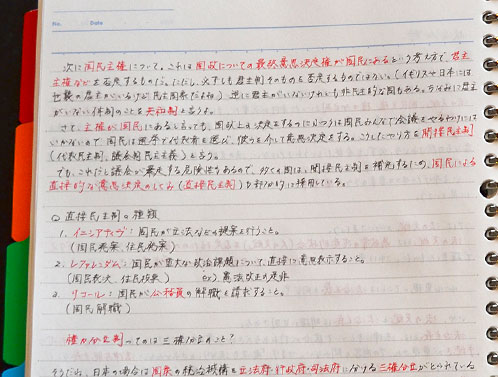 No.
Date
次に国民主権について。これは国政についての最終意思決定権が国民にあるという考え方で、君主
主権などを否定するものだ。ただし、必ずしも君主制そのものを否定するものではない。(イギリスや日本には
世襲の君主がいるけど民主国家だよね) 逆に君主がいないけれども非民主的な国もある。ちなみに君主
がいない体制のことを共和制と言うよ。
さて、主権が国民にあると言っても、国政上の決定をするのにいつも国民みんなで会議をやるわけには
いかないので国民は選挙で代表者を選び、彼らを介して意思決定をする。こうしたやり方を間接民主制
(代表民主制、議会制民主主義)と言う。
でも、これだと議会が暴走する危険性もあるので、多くの国は、間接民主制を補完するため、国民による
直接的な意思決定のしくみ(直接民主制)も部分的に採用している。
◎ 直接民主制の種類
1. イニシアティヴ: 国民が立法などの提案を行うこと。
(国民発案、住民発案)
2. レファレンダム: 国民が重大な政治課題について、直接に意思表示すること。
(国民表決、住民投票) ex) 憲法改正の是非
3. リコール: 国民が公務員の解職を請求すること。
(国民解職)
権力分立制ってのは三権分立のこと?
そうだね。日本の場合は国家の統治機構を立法府・行政府・司法府に分ける三権分立がとられている